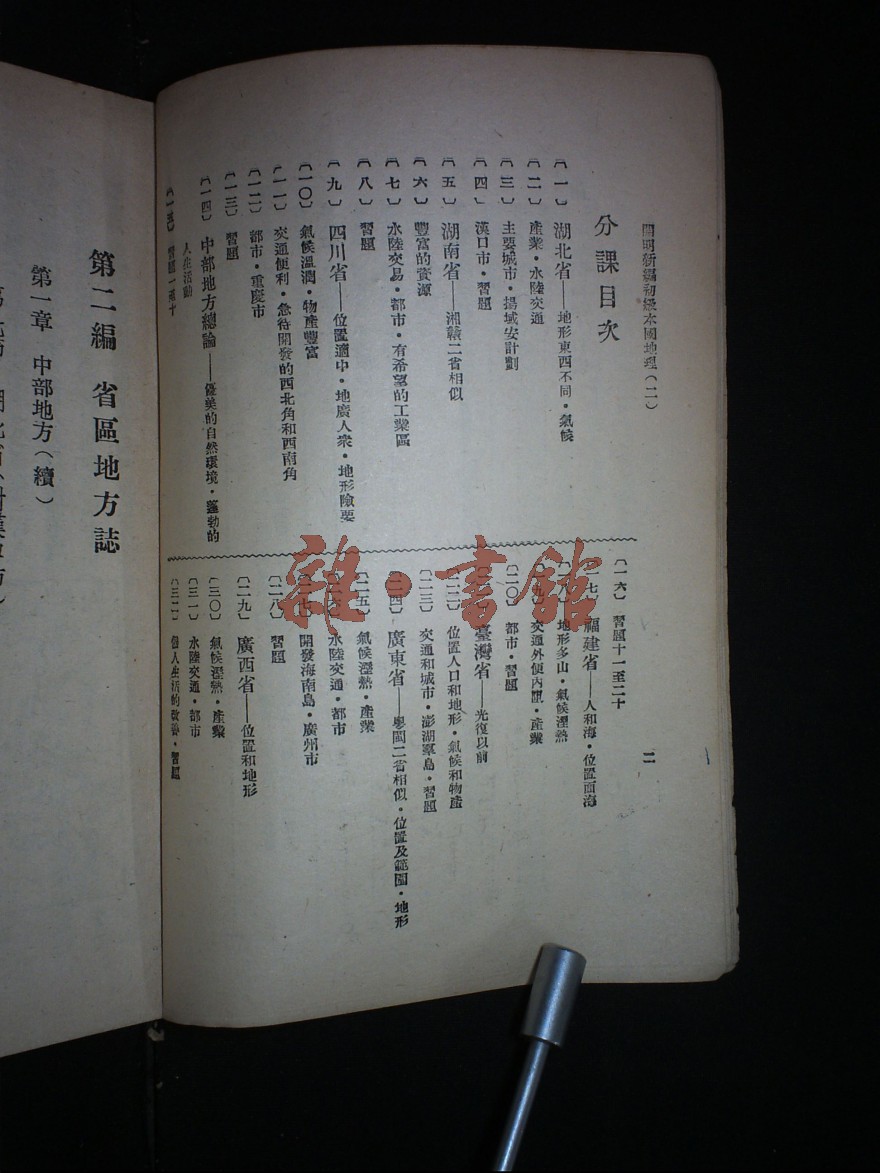 開明新編初級本國地理(二)
二
分課目次
〔一〕 湖北省——地形東西不同·氣候
〔二〕 產業·水陸交通
〔三〕 主要城市·揚域安計劃
〔四〕 漢口市·習題
〔五〕 湖南省——湘贛二省相似
〔六〕 豐富的資源
〔七〕 水陸交易·都市·有希望的工業區
〔八〕 習題
〔九〕 四川省——位置適中·地廣人衆·地形險要
〔一〇〕 氣候溫潤·物產豐富
〔一一〕 交通便利·急待開發的西北角和西南角
〔一二〕 都市·重慶市
〔一三〕 習題
〔一四〕 中部地方總論——優美的自然環境·蓬勃的
人生活動
〔一五〕 習題一至十
〔一六〕 習題十一至二十
七〕 福建省——人和海·位置面海
八〕 地形多山·氣候溼熱
〔一九〕 交通外便內阻·產業
〔二〇〕 都市·習題
臺灣省——光復以前
〔二二〕 位置人口和地形·氣候和物產
〔二三〕 交通和城市·澎湖羣島·習題
〔二四〕 廣東省——粵閩二省相似·位置及範圍·地形
〔二五〕 氣候溼熱·產業
〔二六〕 水陸交通·都市
〔二七〕 開發海南島·廣州市
〔二八〕 習題
〔二九〕 廣西省——位置和地形
〔三〇〕 氣候溼熱·產業
〔三一〕 水陸交通·都市
〔三二〕 傜人生活的改善·習題
雜·書館
第二編 省區地方誌
第一章 中部地方(續)